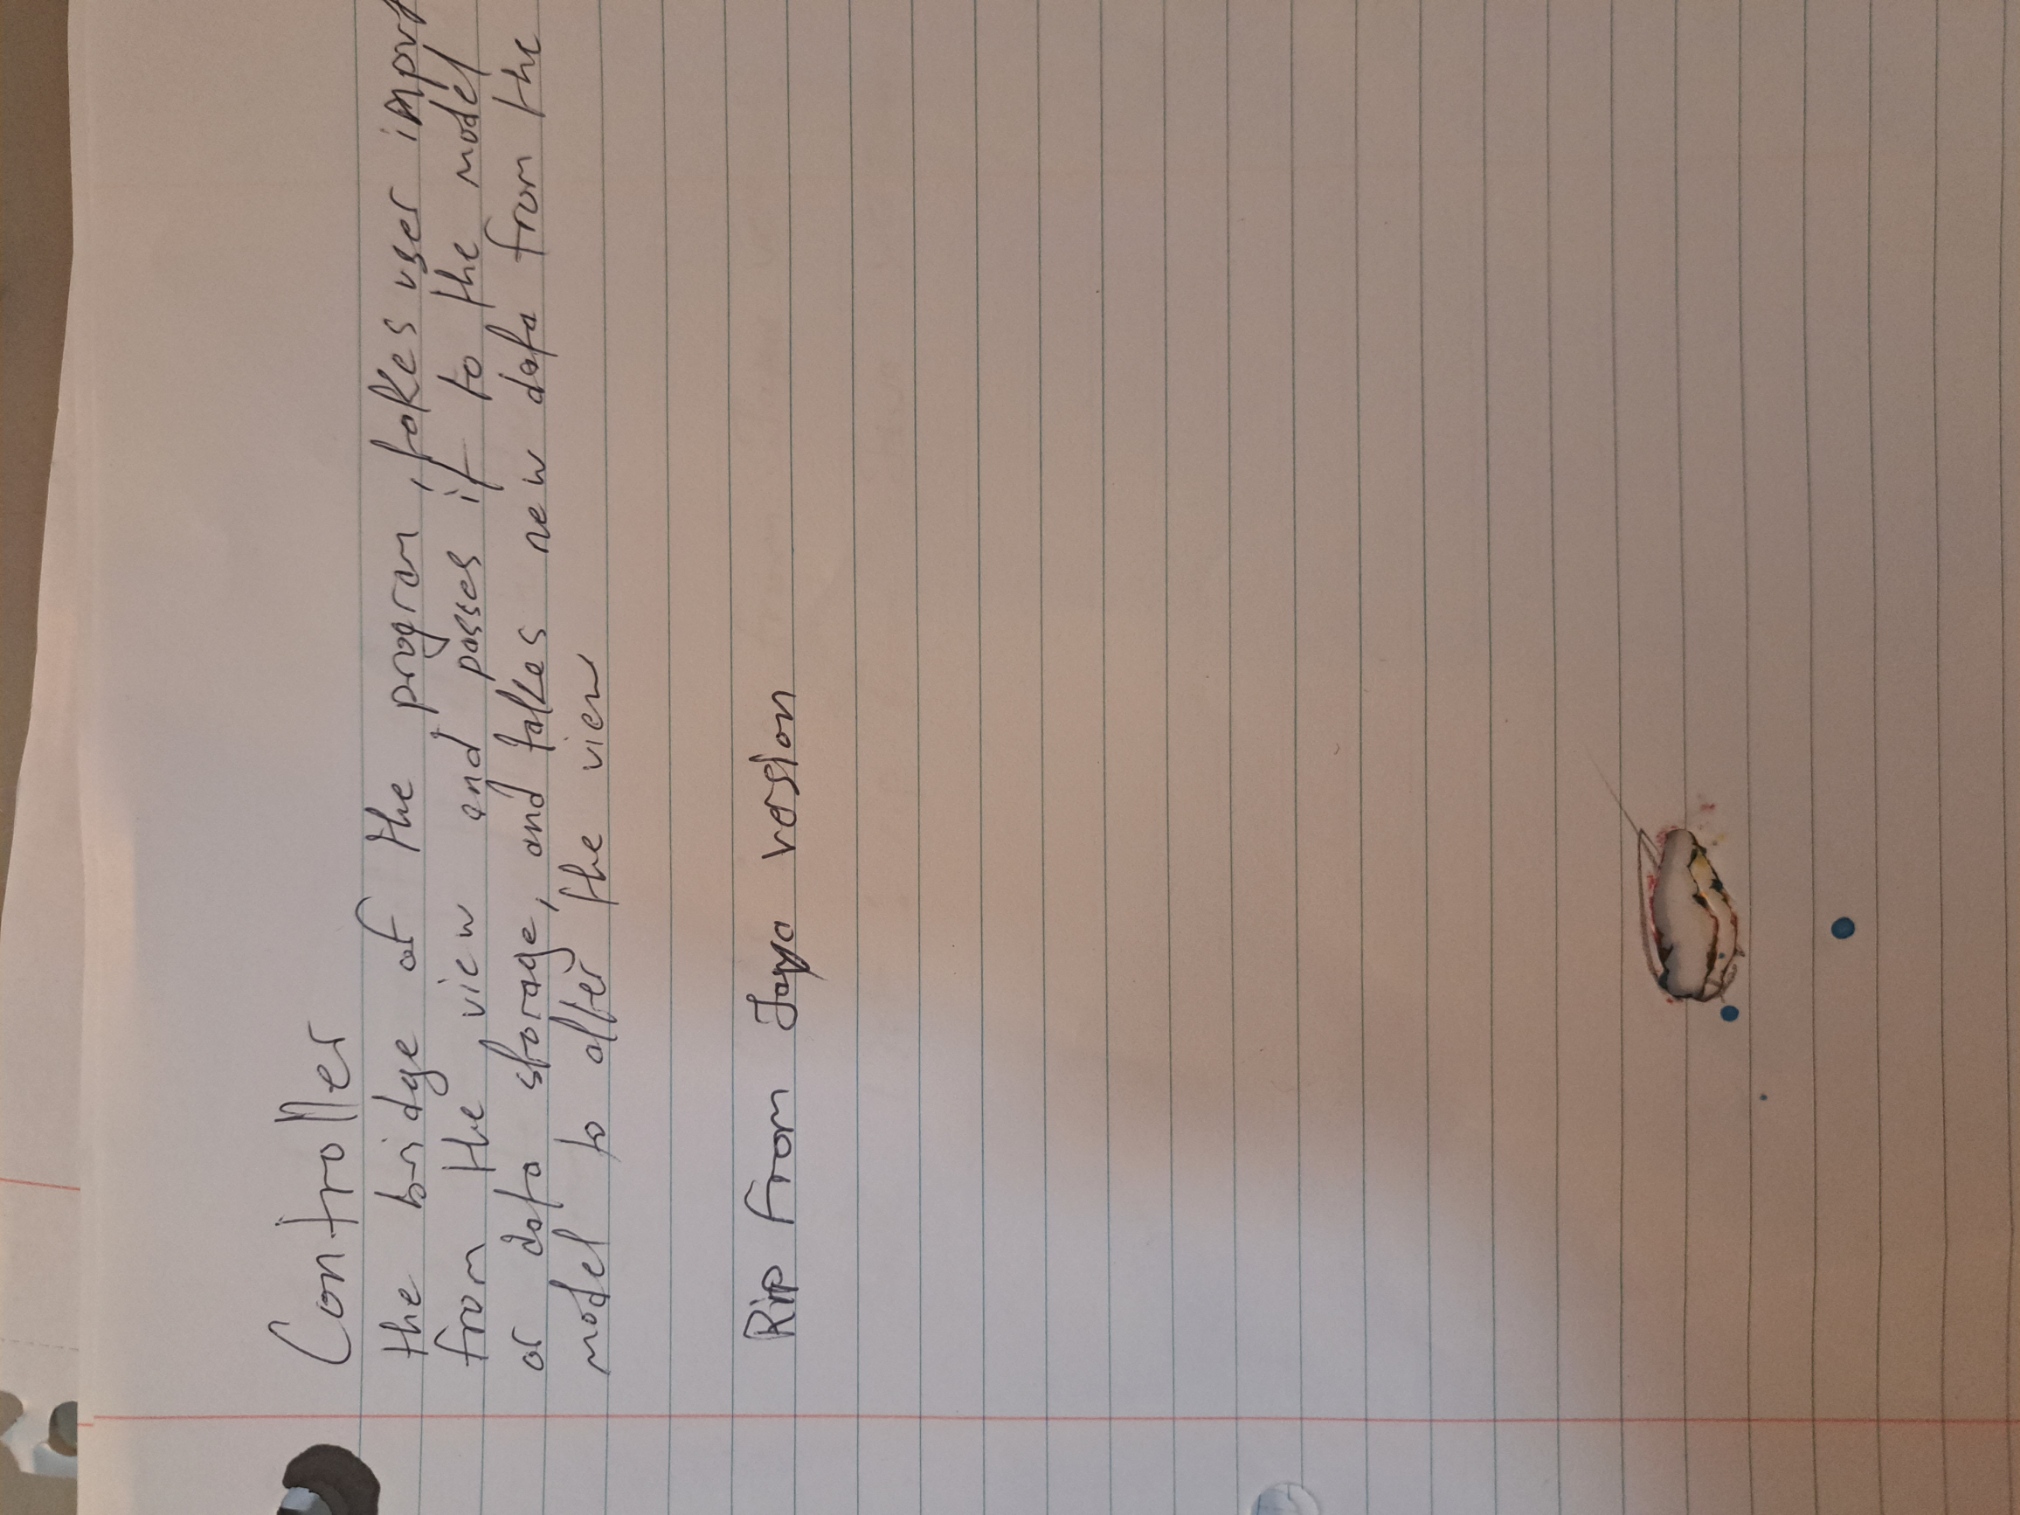 Controller
the bridge of the program, takes user input
from the view and passes it to the model
or data storage, and takes new data from the
model to alter the view
Rip from Java version